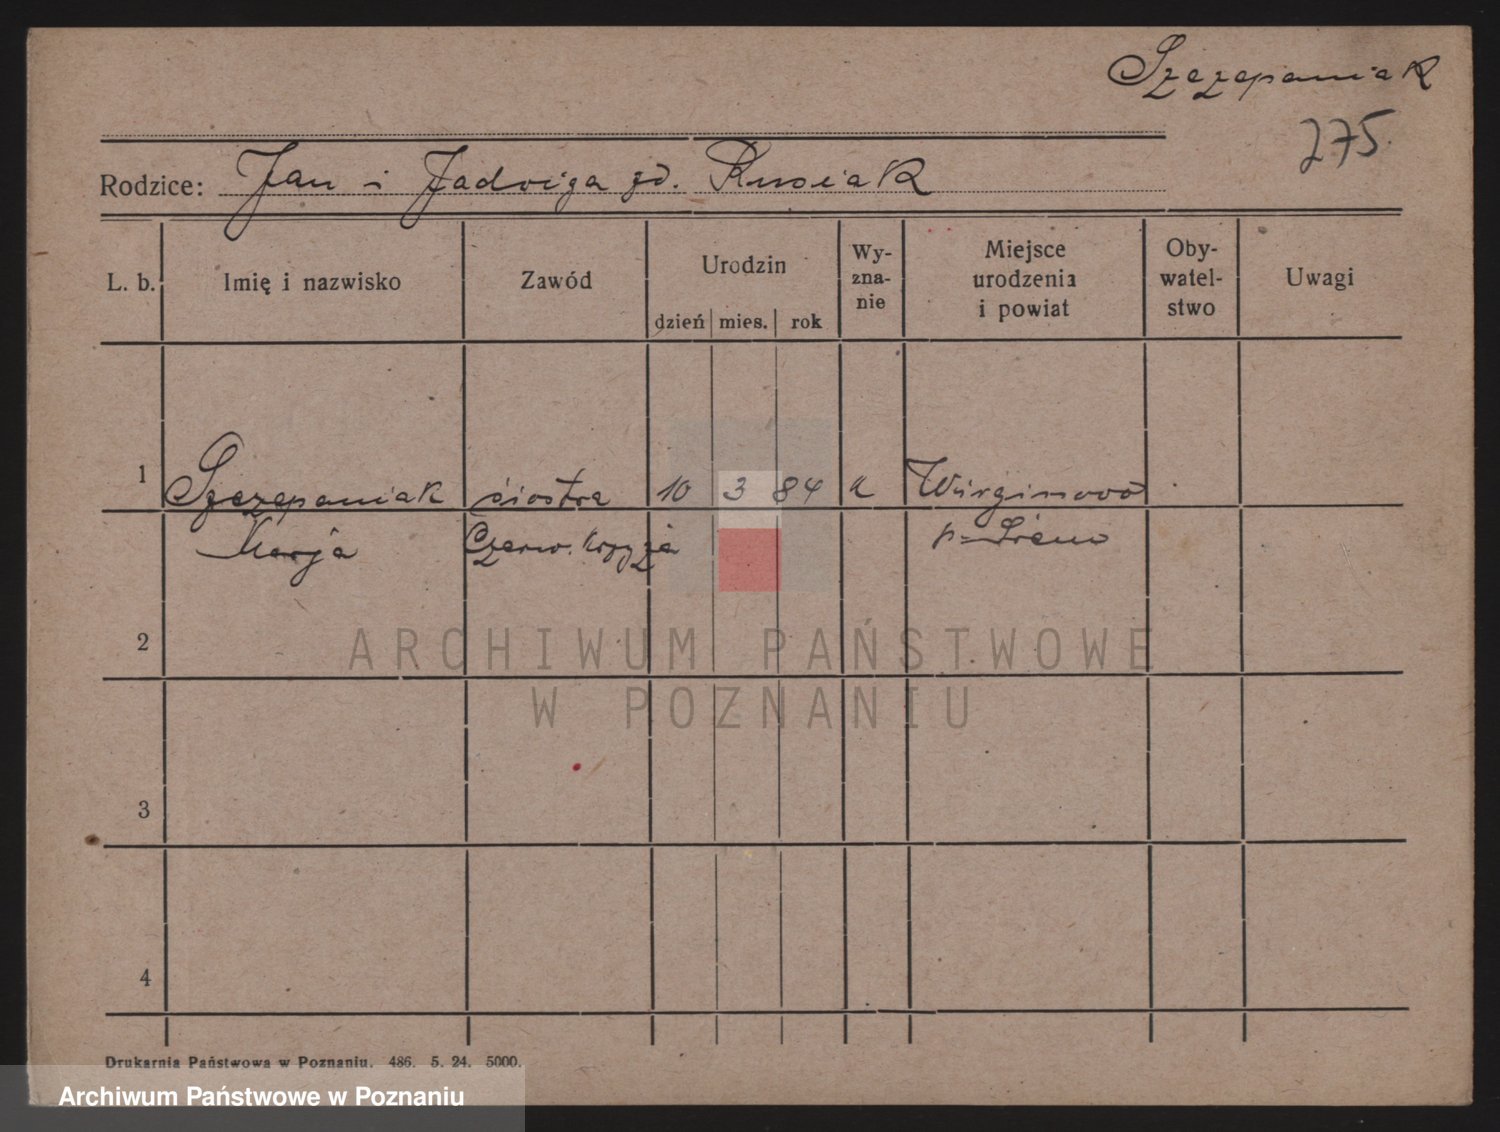 Szczepaniak
275.
Rodzice: Jan i Jadwiga zd. Kusiak
L. b.
Imię i nazwisko
Zawód
Urodzin
dzień mies. rok
Wy-
zna-
nie
Miejsce
urodzenia
i powiat
Oby-
watel-
stwo
Uwagi
1 Szczepaniak siostra 10 3 84 k
Marja Czerw. Krzyża p. Śrem
2
3
4
ARCHIWUM PAŃSTWOWE
W POZNANIU
Drukarnia Państwowa w Poznaniu. 486. 5. 24. 5000.
Archiwum Państwowe w Poznaniu